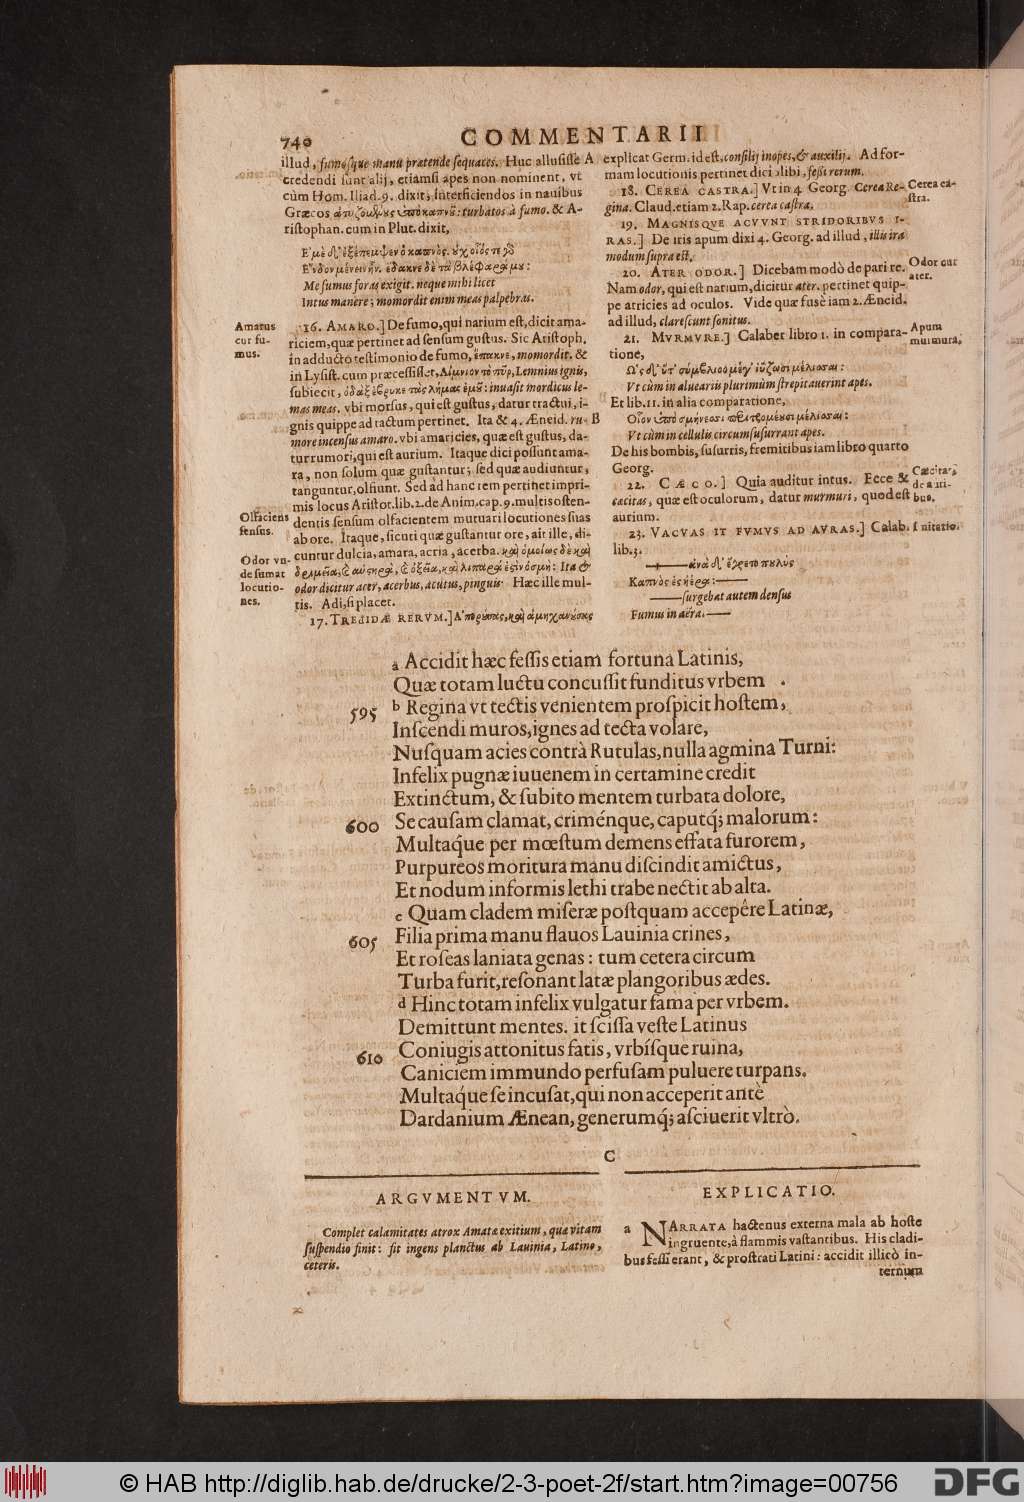 740
COMMENTARII
illud, fumosque manu prætende sequaces. Huc allusisse A
credendi sunt alij, etiamsi apes non nominent, vt
cùm Hom. Iliad. 9. dixit, Interficiendos in nauibus
Græcos ἀτυζομένους ὑπὸ καπνοῦ: turbatos à fumo. & A-
ristophan. cum in Plut. dixit,
Ἐμὲ δ' ἐξέπεμψεν ὁ καπνός. οὐχ οἷός τε γὸ
Ἔνδον μένειν ἦν. ἔδακνε δὲ τὰ βλέφαρά μου:
Me fumus foras exigit. neque mihi licet
Intus manere; momordit enim meas palpebras.
Amarus
cur fu-
mus.
16. AMARO.] De fumo, qui narium est, dicit ama-
riciem, quæ pertinet ad sensum gustus. Sic Aristoph.
in adducto testimonio de fumo, ἔδακνε, momordit. &
in Lysist. cum præcessisset, Λήμνιον τὸ πῦρ, Lemnius ignis,
subiecit, ὀδὰξ ἔβρυκε τὰς λήμας ἐμοῦ: inuasit mordicus le-
mas meas. vbi morsus, qui est gustus, datur tractui, i-
gnis quippe ad tactum pertinet. Ita & 4. Æneid. ru- B
more incensus amaro. vbi amaricies, quæ est gustus, da-
tur rumori, qui est aurium. Itaque dici possunt ama-
ra, non solum quæ gustantur; sed quæ audiuntur,
tanguntur, olfiunt. Sed ad hanc rem pertinet impri-
mis locus Aristot. lib. 2. de Anim. cap. 9. multis osten-
Olfaciens
sensus.
dentis sensum olfacientem mutuari locutiones suas
ab ore. Itaque, sicuti quæ gustantur ore, ait ille, di-
Odor vn-
de sumat
locutio-
nes.
cuntur dulcia, amara, acria, acerba. καὶ ὁμοίως δὲ καὶ
δριμεῖα, καὶ αὐστηρὰ, καὶ ὀξεῖα, καὶ λιπαρά ἐστιν ὀσμή: Ita &
odor dicitur acer, acerbus, acutus, pinguis. Hæc ille mul-
tis. Adi, si placet.
17. TREPIDÆ RERVM.] Ἀπορύσας, καὶ ἀμηχανύσας
explicat Germ. id est, consilij inopes, & auxilij. Ad for-
mam locutionis pertinet dici alibi, fessi rerum.
18. CEREA CASTRA.] Vt in 4 Georg. Cerea Re-
gina. Claud. etiam 2. Rap. cerea castra.
Cerea ca-
stra.
19. MAGNISQVE ACVVNT STRIDORIBVS I-
RAS.] De iris apum dixi 4. Georg. ad illud, illis ira
modum supra est.
20. ATER ODOR.] Dicebam modò de pari re.
Odor cur
ater.
Nam odor, qui est narium, dicitur ater. pertinet quip-
pe atricies ad oculos. Vide quæ fusè iam 2. Æneid.
ad illud, clarescunt sonitus.
21. MVRMVRE.] Calaber libro 1. in compara-
Apum
murmura,
tione,
Ὡς δ' ὑπ' σύμβλοιο μέγ' ἰύζωσι μέλισσαι:
Vt cùm in aluearis plurimùm strepitauerint apes.
Et lib. 11. in alia comparatione,
Οἷον ὑπὸ σμήνεσσι μέλισσαι:
Vt cùm in cellulis circumsusurrant apes.
De his bombis, susurris, fremitibus iam libro quarto
Georg.
22. CÆCO.] Quia auditur intus. Ecce &
Cæcitas
de auri-
bus.
cæcitas, quæ est oculorum, datur murmuri, quod est
aurium.
23. VACVAS IT FVMVS AD AVRAS.] Calab.
lib. 3.
—— ἀνὰ δ' ἔχετο πουλύς
Καπνὸς ἐς ἠέρα: ——
—— surgebat autem densus
Fumus in aëra. ——
a Accidit hæc fessis etiam fortuna Latinis,
Quæ totam luctu concussit funditus vrbem .
595 b Regina vt tectis venientem prospicit hostem,
Inscendi muros, ignes ad tecta volare,
Nusquam acies contrà Rutulas, nulla agmina Turni:
Infelix pugnæ iuuenem in certamine credit
Extinctum, & subito mentem turbata dolore,
600 Se causam clamat, criménque, caputq́; malorum:
Multaq́ue per mœstum demens effata furorem,
Purpureos moritura manu discindit amictus,
Et nodum informis lethi trabe nectit ab alta.
c Quam cladem miseræ postquam accepêre Latinæ,
605 Filia prima manu flauos Lauinia crines,
Et roseas laniata genas: tum cetera circum
Turba furit, resonant latæ plangoribus ædes.
d Hinc totam infelix vulgatur fama per vrbem.
Demittunt mentes. it scissa veste Latinus
610 Coniugis attonitus fatis, vrbísque ruina,
Caniciem immundo perfusam puluere turpans.
Multaq́ue se incusat, qui non acceperit antè
Dardanium Ænean, generumq́; asciuerit vltrò.
C
ARGVMENTVM.
Complet calamitates atrox Amatæ exitium, quæ vitam
suspendio finit: fit ingens planctus ab Lauinia, Latino,
ceteris.
EXPLICATIO.
a NARRATA hactenus externa mala ab hoste
ingruente, à flammis vastantibus. His cladi-
bus fessi erant, & prostrati Latini: accidit illicò in-
ternum
© HAB http://diglib.hab.de/drucke/2-3-poet-2f/start.htm?image=00756
DFG